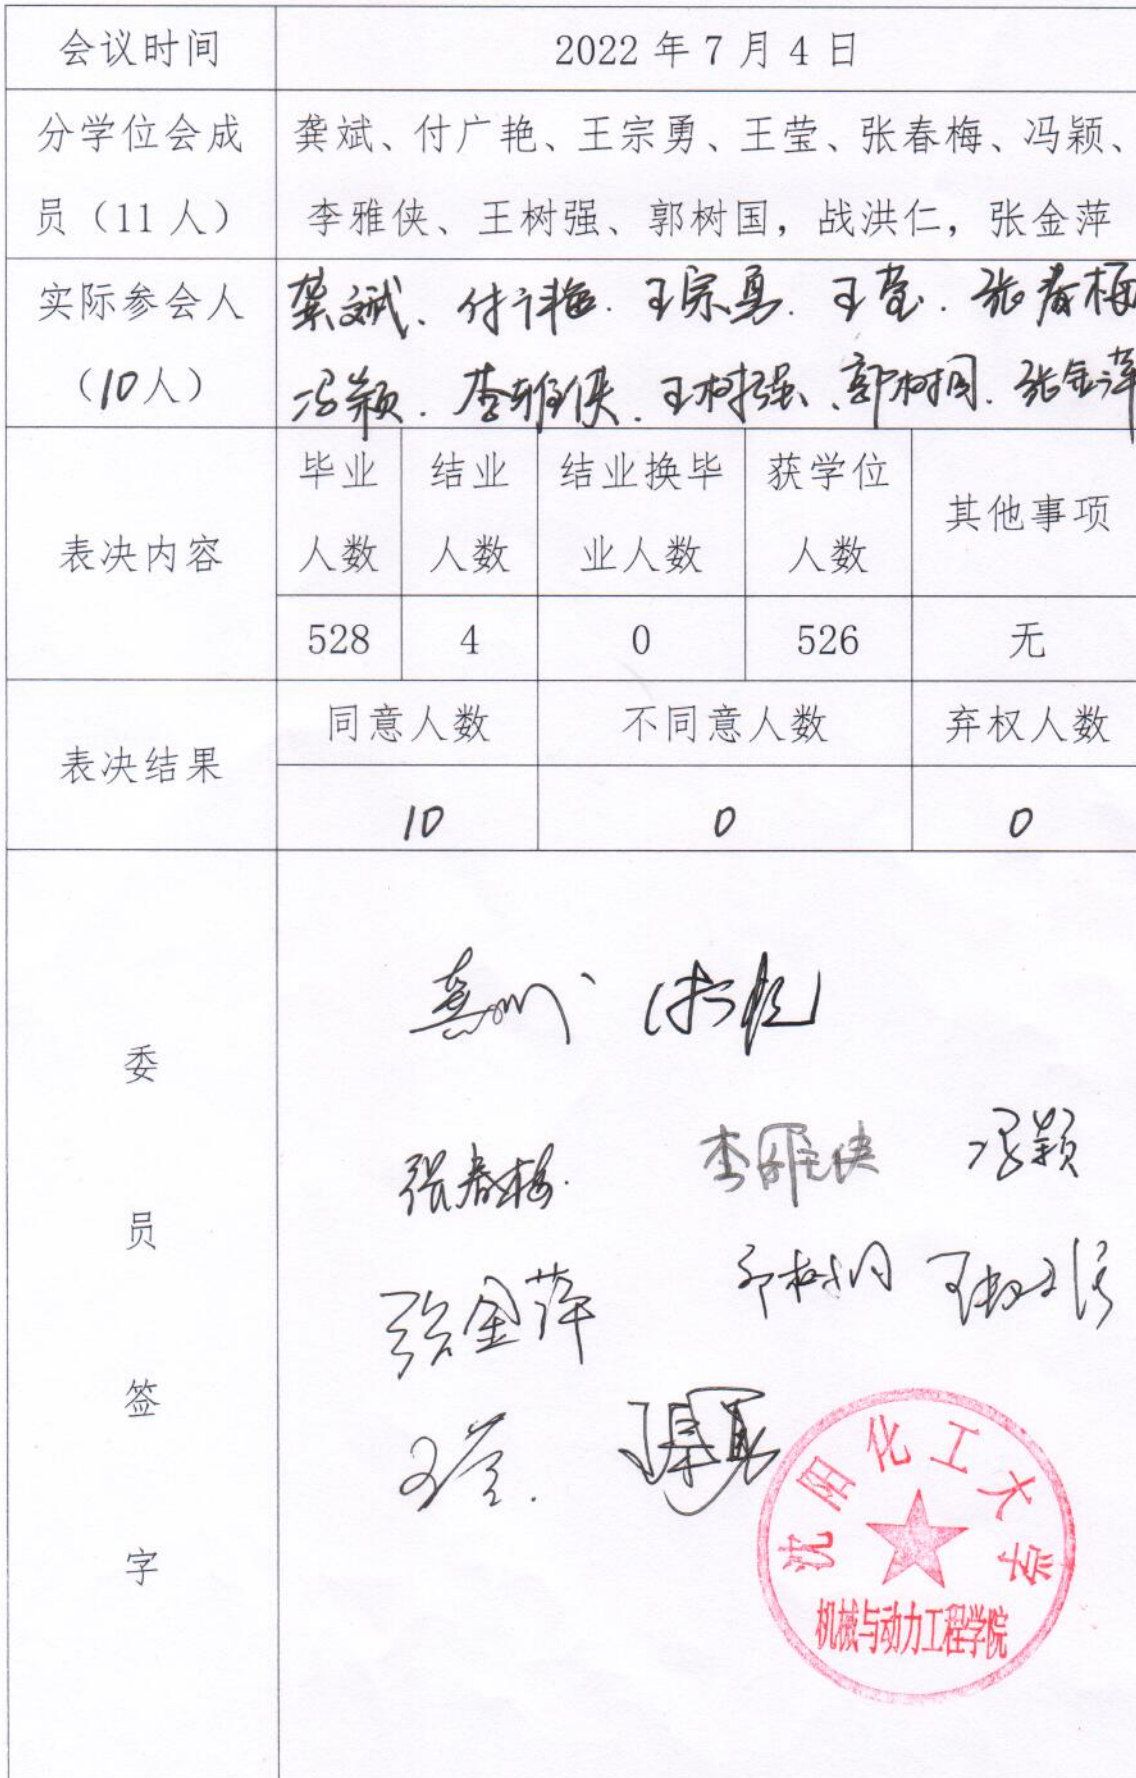 会议时间
2022年7月4日
分学位会成
员（11人）
龚斌、付广艳、王宗勇、王莹、张春梅、冯颖、
李雅侠、王树强、郭树国，战洪仁，张金萍
实际参会人
（10人）
龚斌、付广艳、王宗勇、王莹、张春梅
冯颖、李雅侠、王树强、郭树国、张金萍
表决内容
毕业
人数
结业
人数
结业换毕
业人数
获学位
人数
其他事项
528 4 0 526 无
表决结果
同意人数 不同意人数 弃权人数
10 0 0
委
员
签
字
龚斌 付广艳
张春梅 李雅侠 冯颖
张金萍 郭树国 王树强
王莹 王宗勇
沈阳化工大学
机械与动力工程学院